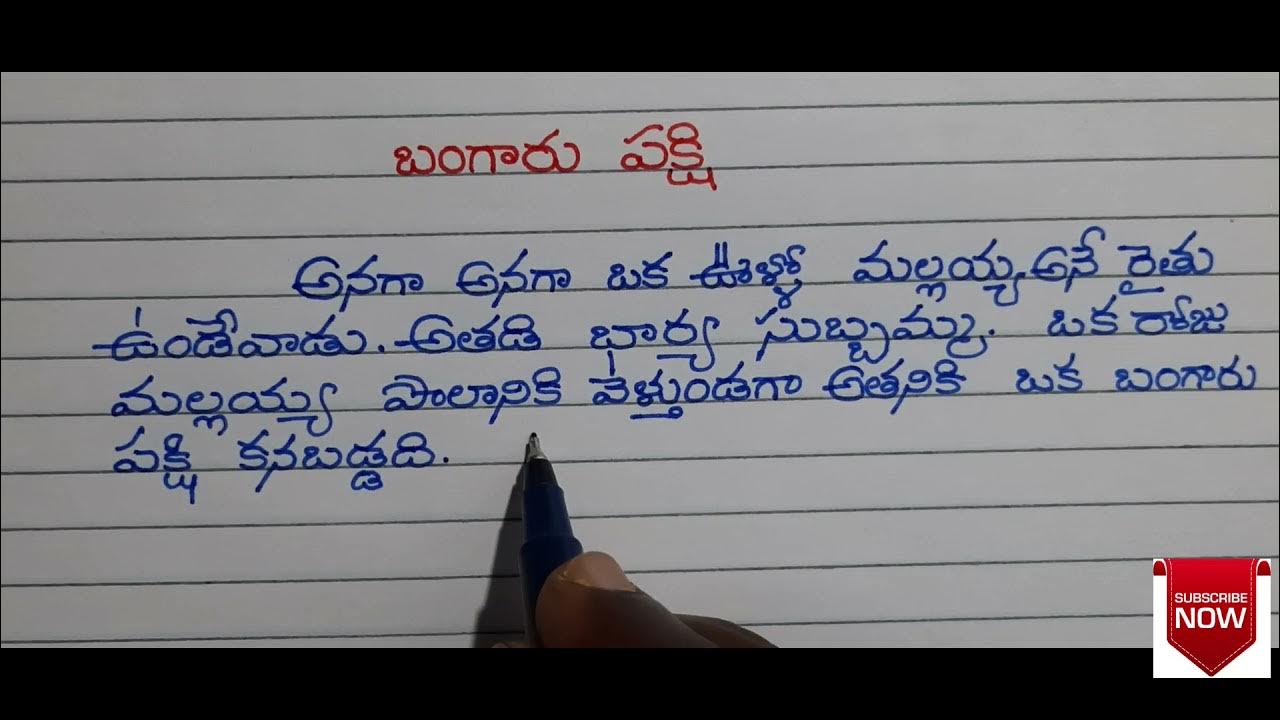 బంగారు పక్షి
అనగా అనగా ఒక ఊళ్ళో మల్లయ్య అనే రైతు
ఉండేవాడు. అతడి భార్య సుబ్బమ్మ. ఒక రోజు
మల్లయ్య పొలానికి వెళ్తుండగా అతనికి ఒక బంగారు
పక్షి కనబడ్డది.
SUBSCRIBE
NOW